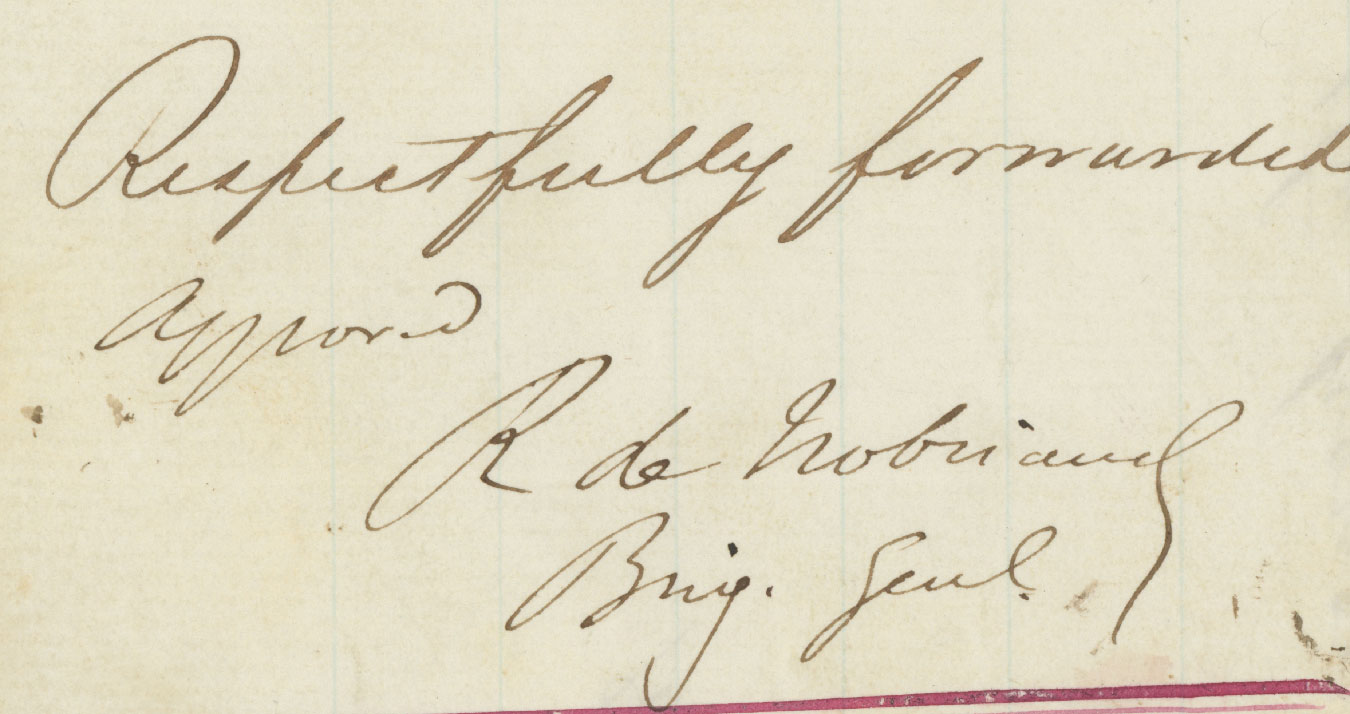 Respectfully forwarded
approved
R de Trobriand
Brig. Genl.